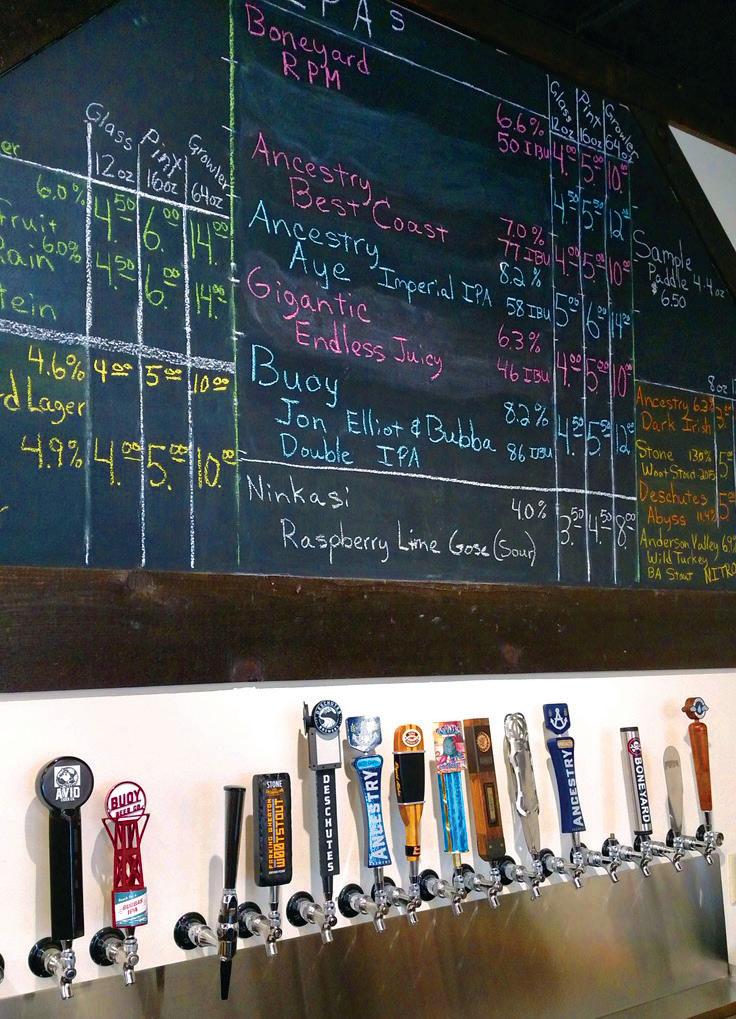 er
Glass Pint Growler
12oz 16oz 64oz
6.0% 4.50 6.00 14.00
Fruit
6.0% 4.50 6.00 14.00
tein
4.6% 4.00 5.00 10.00
d Lager
4.9% 4.00 5.00 10.00
IPAs
Glass Pint Growler
12oz 16oz 64oz
Boneyard
RPM
6.6%
50 IBU 4.00 5.00 10.00
4.50 5.50 12.00
Ancestry
Best Coast
7.0%
77 IBU 4.00 5.00 10.00
Ancestry
Aye Imperial IPA
8.2%
58 IBU 5.00 6.00 14.00
Gigantic
Endless Juicy
6.3%
46 IBU 4.00 5.00 10.00
Buoy
Jon Elliot & Bubba
Double IPA
8.2%
86 IBU 4.50 5.50 12.00
Ninkasi
Raspberry Lime Gose (Sour)
4.0% 3.50 4.50 8.00
Sample
Paddle 4-4oz
$6.50
8oz
Ancestry 6.3%
Dark Irish
Stone 13.0%
Woot Stout 2015
Deschutes
Abyss
Anderson Valley
Wild Turkey
BA Stout NITRO
AVID
CIDER CO.
BUOY
BEER CO.
STONE
FARKING WHEATON
W00TSTOUT
DESCHUTES
ANCESTRY
ANCESTRY
BONEYARD